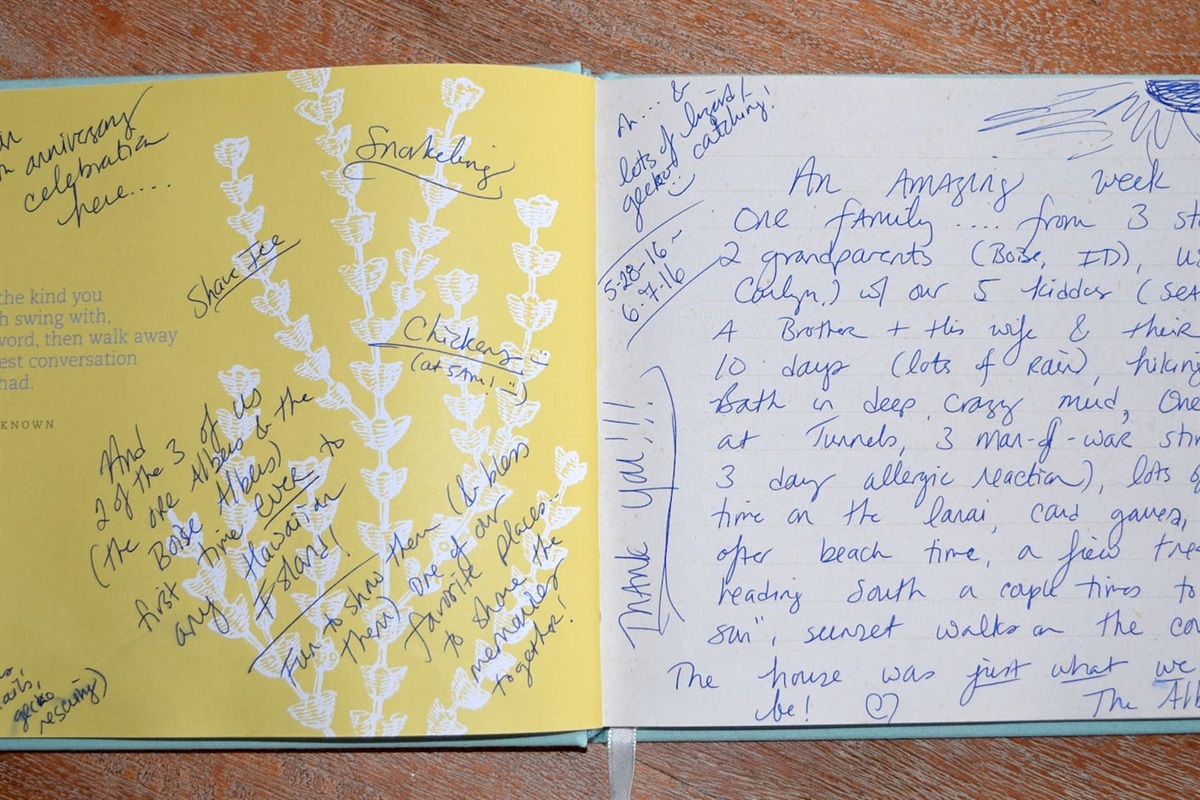 anniversary
celebration
here....
Snorkeling
Shave Ice
Chickens
(at 5AM! :)
the kind you
h swing with,
word, then walk away
est conversation
had.
KNOWN
And
2 of the 3 of us
(the ore Albers & the
Boise Albers)
first time ever to
any Hawaiian
Island!
Fun to show them (& bless
them) one of our
favorite places...
to share the
memories
together!
gecko
rescuing)
& 
lots of lizard/
gecko catching!
5-28-16 ~
6-7-16
THANK YOU!!!
An Amazing week
One family .... from 3 st
2 grandparents (Boise, ID), u
Carlyn,) w/ our 5 kiddos (sea
A Brother + his wife & their
10 days (lots of rain), hiking
Bath in deep, crazy mud, one
at Tunnels, 3 man-of-war stin
3 day allergic reaction), lots o
time on the lanai, card games,
after beach time, a few tre
heading South a couple times to
sun", sunset walks on the co
The house was just what we
be! ♡ The Alb